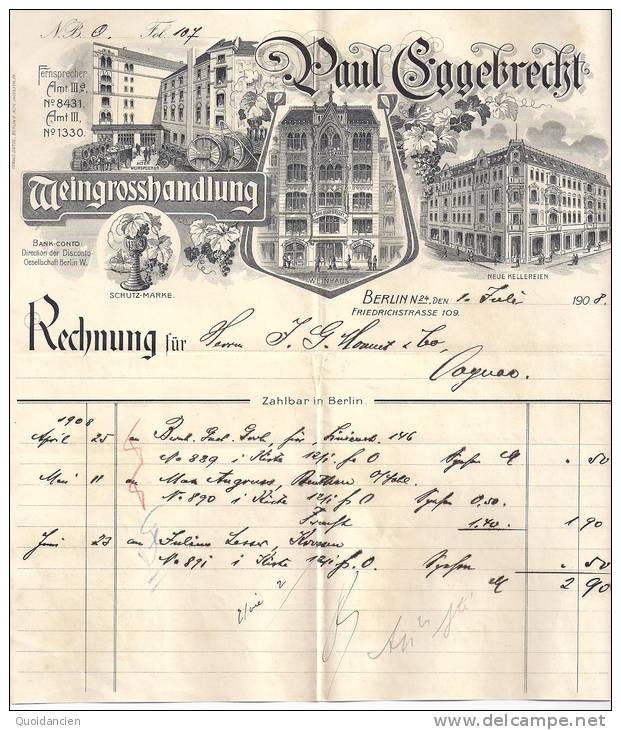 N.B.O. Fol. 107
Paul Eggebrecht
Fernsprecher
Amt IIIa,
No 8431.
Amt III,
No 1330.
ALTER
WEINSPEICHER
Weingrosshandlung
BANK-CONTO:
Direction der Disconto-
Gesellschaft Berlin W.
SCHUTZ-MARKE.
WEINHAUS
NEUE KELLEREIEN
BERLIN N24, DEN 1. Juli 1908.
FRIEDRICHSTRASSE 109.
Rechnung für Herren J. G. Monnet & Co,
Cognac.
Zahlbar in Berlin.
1908
April 25 an für 146
No 889 1 Kiste 12/1 fr. O Spesen M " 50
Mai 11 an Max Beuthen O/
No. 890 1 Kiste 12/1 fr. O Spesen 0,50.
Fracht 1.40. 1 90
Juni 23 an Julius Lesser,
No 891 1 Kiste 12/1 fr. O. Spesen " 50
M 2 90
Quoidancien
delcampe.net